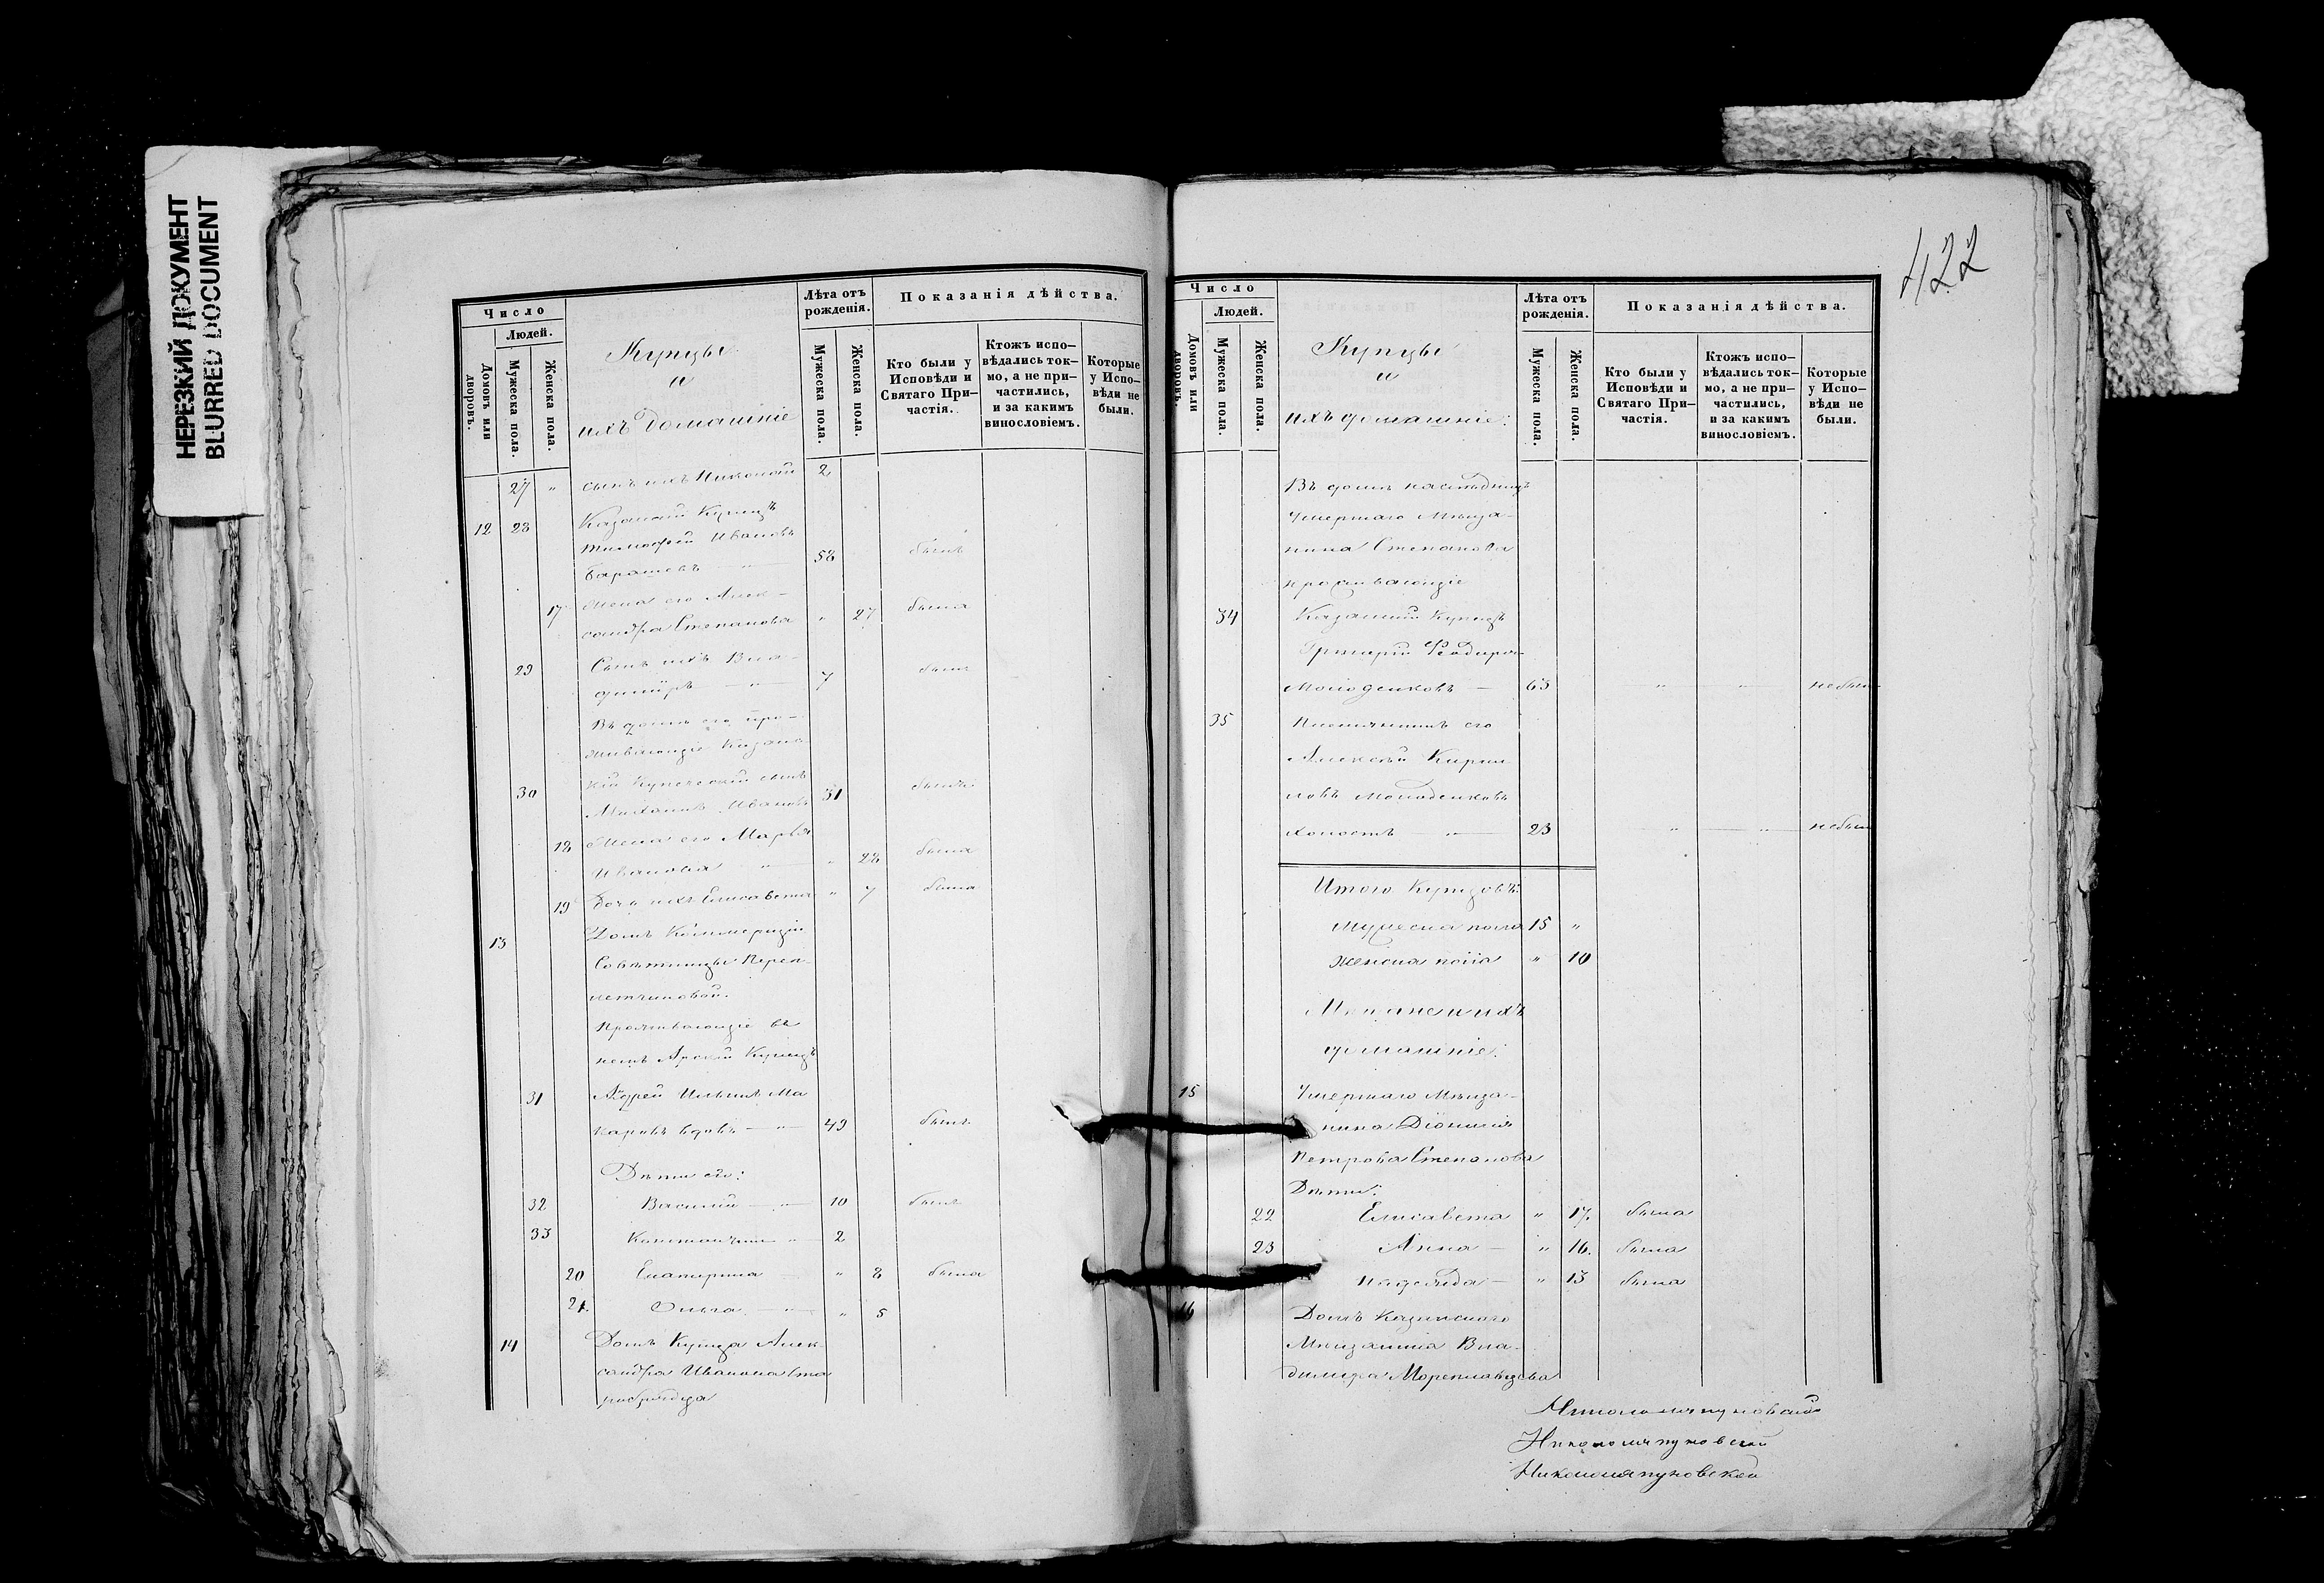 НЕРЕЗКИЙ ДОКУМЕНТ
BLURRED DOCUMENT
Число
Людей.
Домовъ или дворовъ.
Мужеска пола.
Женска пола.
Купцы
и
ихъ домашніе
Лѣта отъ рожденія.
Мужеска пола.
Женска пола.
Показанія дѣйства.
Кто были у Исповѣди и Святаго При-
частія.
Ктожъ испо-
вѣдались ток-
мо, а не при-
частились,
и за какимъ
винословіемъ.
Которые
у Испо-
вѣди не
были.
27 " сынъ ихъ Николай 2
12 28 Казанскій Купецъ
Тимофей Ивановъ
Барашевъ — " — 58 былъ
17 Жена его Алек-
сандра Степанова " 27 была
29 Сынъ ихъ Вла-
диміръ — " — 7 былъ
Въ домѣ его про-
живающіе Казанс-
30 кій Купеческій сынъ
Михаилъ Ивановъ 31 былъ
18 Жена его Марья
Иванова — " — " 28 была
19 Дочь ихъ Елисавета " 7 была
13 Домъ Коммерціи
Совѣтницы Переп-
летчиковой.
Проживающіе въ
немъ Арскій Купецъ
31 Андрей Ильинъ Ма
каровъ вдовъ — " — 49 былъ
Дѣти его:
32 Василій — " — 10 былъ
33 Константинъ — " 2
20 Екатерина — " 8 была
21. Ольга — " — " 5
14 Домъ Купца Алек-
сандра Иванова Ста
422
Число
Людей.
Домовъ или дворовъ.
Мужеска пола.
Женска пола.
Купцы
и
ихъ домашніе:
Лѣта отъ рожденія.
Мужеска пола.
Женска пола.
Показанія дѣйства.
Кто были у
Исповѣди и
Святаго При-
частія.
Ктожъ испо-
вѣдались ток-
мо, а не при-
частились,
и за какимъ
винословіемъ.
Которые
у Испо-
вѣди не
были.
Въ домѣ наслѣдницъ
Умершаго Мѣща-
нина Степанова
проживающіе
34 Казанскій Купецъ
Григорій Феодоров
Молоденковъ — 63 " " небылъ
35 Племянникъ его
Алексѣй Кирил
ловъ Молоденковъ
холостъ — " — 23 " " небылъ
Итого Купцовъ:
Мужеска пола 15 "
Женска пола " 10
Мѣщане и ихъ
домашніе:
15 Умершаго Мѣща-
нина Діонисія
Петрова Степанова
Дѣти:
22 Елисавета " 17. была
23 Анна — " 16. была
Надежда — " 13 была
16 Домъ Казанскаго
Мѣщанина Вла-
диміра Мореплавцева
Никололяпуновской
Никололяпуновской
Никололяпуновской